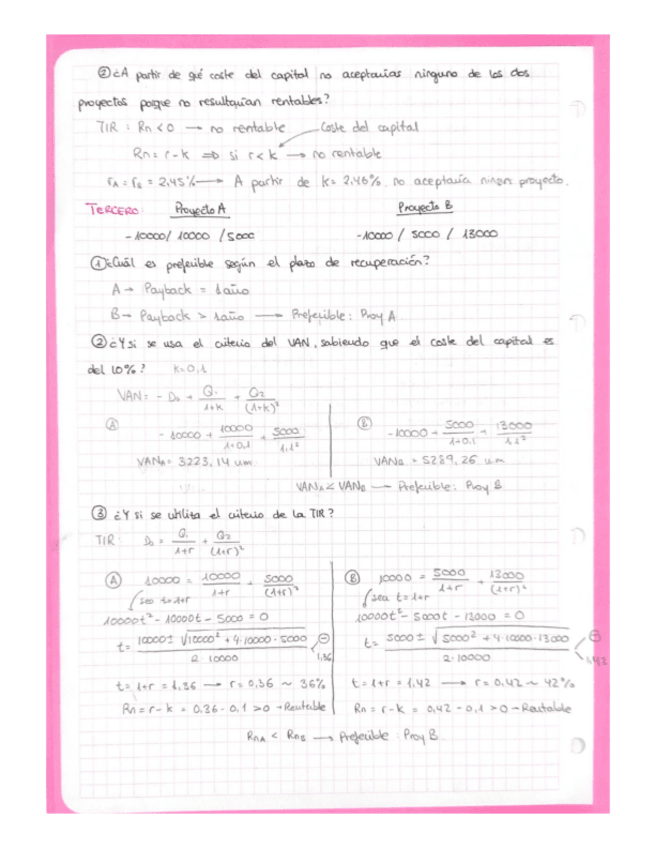 ② ¿A partir de qué coste del capital no aceptarías ninguno de los dos
proyectos porque no resultarían rentables?
TIR : Rn < 0 → no rentable Coste del capital
Rn = r - k ⇒ si r < k → no rentable
rA = rB = 2,45% → A partir de k = 2,46% no aceptaría ningún proyecto.
TERCERO: Proyecto A Proyecto B
-10000 / 10000 / 5000 -10000 / 5000 / 13000
① ¿Cuál es preferible según el plazo de recuperación?
A → Payback = 1 año
B → Payback > 1 año → Preferible: Proy A
② ¿Y si se usa el criterio del VAN, sabiendo que el coste del capital es
del 10%? k = 0,1
VAN = - D0 + Q1/(1+k) + Q2/(1+k)²
Ⓐ -10000 + 10000/(1+0,1) + 5000/1,1²
VANA = 3223,14 um
Ⓑ -10000 + 5000/(1+0,1) + 13000/1,1²
VANB = 5289,26 um
VANA < VANB → Preferible: Proy B
③ ¿Y si se utiliza el criterio de la TIR?
TIR: D0 = Q1/(1+r) + Q2/(1+r)²
Ⓐ 10000 = 10000/(1+r) + 5000/(1+r)²
sea t = 1+r
10000t² - 10000t - 5000 = 0
t = (10000 ± √(10000² + 4·10000·5000))/(2·10000) ⊖ 1,36
t = 1+r = 1,36 → r = 0,36 ~ 36%
Rn = r - k = 0,36 - 0,1 > 0 → Rentable
Ⓑ 10000 = 5000/(1+r) + 13000/(1+r)²
sea t = 1+r
10000t² - 5000t - 13000 = 0
t = (5000 ± √(5000² + 4·10000·13000))/(2·10000) ⊖ 1,42
t = 1+r = 1,42 → r = 0,42 ~ 42%
Rn = r - k = 0,42 - 0,1 > 0 → Rentable
RnA < RnB → Preferible: Proy B